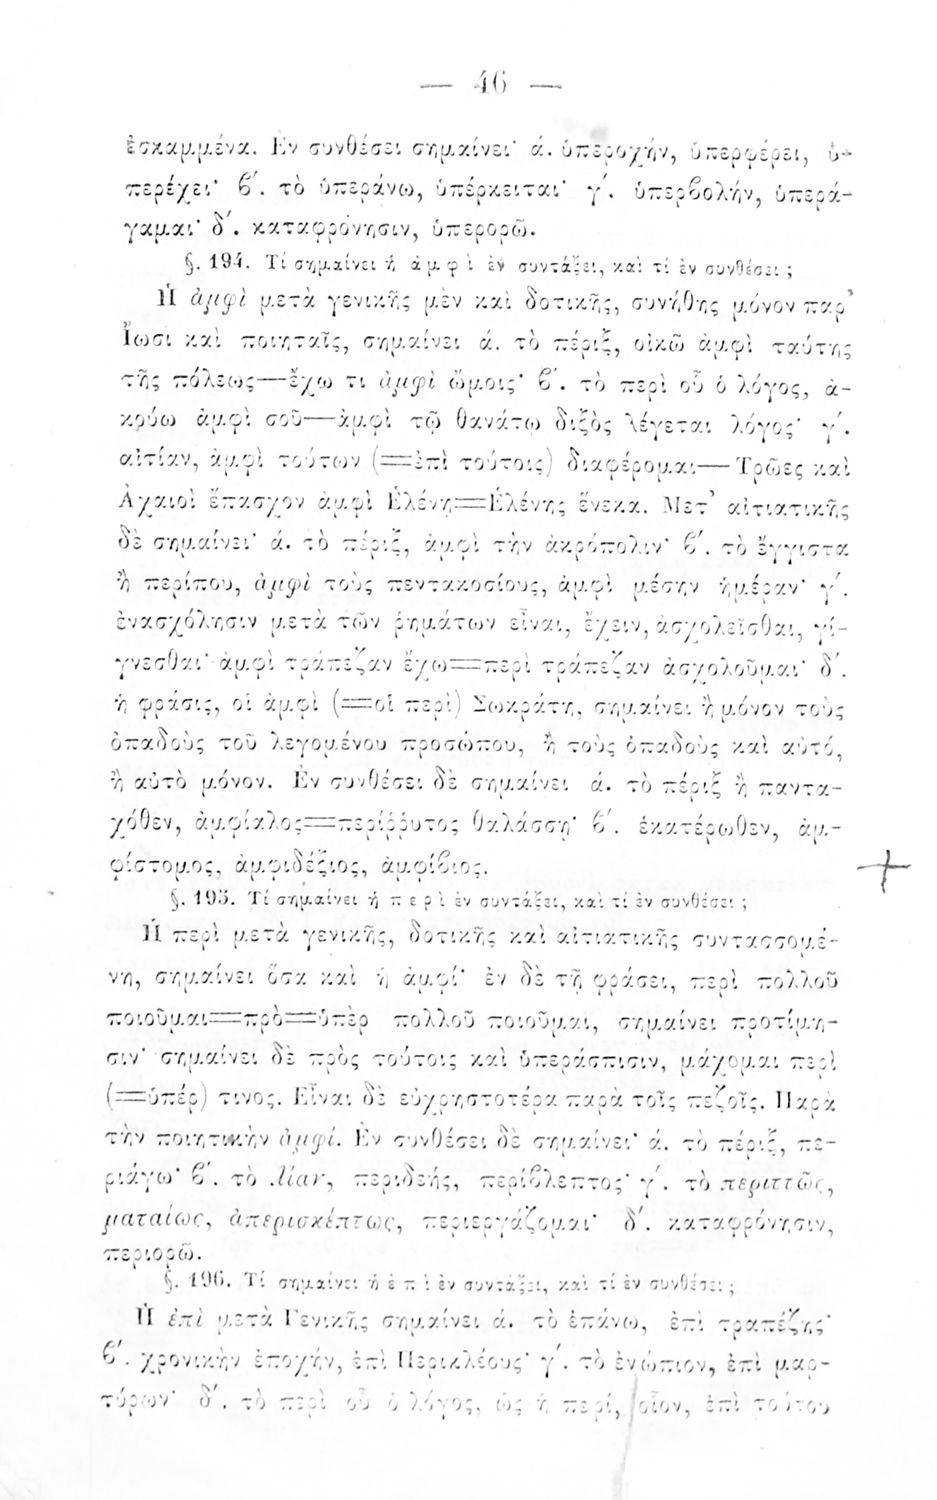 — 46 —
ἐσκαμμένα. Ἐν συνθέσει σημαίνει· ά. ὑπεροχήν, ὑπερφέρει, ὑ-
περέχει· β΄. τὸ ὑπεράνω, ὑπέρκειται· γ΄. ὑπερβολήν, ὑπερά-
γαμαι· δ΄. καταφρόνησιν, ὑπερορῶ.
§. 194. Τί σημαίνει ἡ ἀμφὶ ἐν συντάξει, καὶ τί ἐν συνθέσει ;
Ἡ ἀμφὶ μετὰ γενικῆς μὲν καὶ δοτικῆς, συνήθης μόνον παρ᾿
Ἴωσι καὶ ποιηταῖς, σημαίνει ά. τὸ πέριξ, οἰκῶ ἀμφὶ ταύτης
τῆς πόλεως—ἔχω τι ἀμφὶ ὤμοις· β΄. τὸ περὶ οὗ ὁ λόγος, ἀ-
κούω ἀμφὶ σοῦ—ἀμφὶ τῷ θανάτῳ διξὸς λέγεται λόγος· γ΄.
αἰτίαν, ἀμφὶ τούτων (=ἐπὶ τούτοις) διαφέρομαι—Τρῶες καὶ
Ἀχαιοὶ ἔπασχον ἀμφὶ Ἑλένῃ=Ἑλένης ἕνεκα. Μετ᾿ αἰτιατικῆς
δὲ σημαίνει· ά. τὸ πέριξ, ἀμφὶ τὴν ἀκρόπολιν· β΄. τὸ ἔγγιστα
ἢ περίπου, ἀμφὶ τοὺς πεντακοσίους, ἀμφὶ μέσην ἡμέραν· γ΄.
ἐνασχόλησιν μετὰ τῶν ῥημάτων εἶναι, ἔχειν, ἀσχολεῖσθαι, γί-
γνεσθαι· ἀμφὶ τράπεζαν ἔχω=περὶ τράπεζαν ἀσχολοῦμαι· δ΄.
ἡ φράσις, οἱ ἀμφὶ (=οἱ περὶ) Σωκράτη, σημαίνει ἢ μόνον τοὺς
ὀπαδοὺς τοῦ λεγομένου προσώπου, ἢ τοὺς ὀπαδοὺς καὶ αὐτό,
ἢ αὐτὸ μόνον. Ἐν συνθέσει δὲ σημαίνει ά. τὸ πέριξ ἢ παντα-
χόθεν, ἀμφίαλος=περίῤῥυτος θαλάσσῃ· β΄. ἑκατέρωθεν, ἀμ-
φίστομος, ἀμφιδέξιος, ἀμφίβιος.
§. 195. Τί σημαίνει ἡ περὶ ἐν συντάξει, καὶ τί ἐν συνθέσει ;
Ἡ περὶ μετὰ γενικῆς, δοτικῆς καὶ αἰτιατικῆς συντασσομέ-
νη, σημαίνει ὅσα καὶ ἡ ἀμφί· ἐν δὲ τῇ φράσει, περὶ πολλοῦ
ποιοῦμαι=πρὸ=ὑπὲρ πολλοῦ ποιοῦμαι, σημαίνει προτίμη-
σιν· σημαίνει δὲ πρὸς τούτοις καὶ ὑπεράσπισιν, μάχομαι περὶ
(=ὑπέρ) τινος. Εἶναι δὲ εὐχρηστοτέρα παρὰ τοῖς πεζοῖς. Παρὰ
τὴν ποιητικὴν ἀμφί. Ἐν συνθέσει δὲ σημαίνει· ά. τὸ πέριξ, πε-
ριάγω· β΄. τὸ λίαν, περιδεής, περίβλεπτος· γ΄. τὸ περιττῶς,
ματαίως, ἀπερισκέπτως, περιεργάζομαι· δ΄. καταφρόνησιν,
περιορῶ.
§. 196. Τί σημαίνει ἡ ἐπὶ ἐν συντάξει, καὶ τί ἐν συνθέσει ;
Ἡ ἐπὶ μετὰ Γενικῆς σημαίνει ά. τὸ ἐπάνω, ἐπὶ τραπέζης·
β΄. χρονικὴν ἐποχήν, ἐπὶ Περικλέους· γ΄. τὸ ἐνώπιον, ἐπὶ μαρ-
τύρων· δ΄. τὸ περὶ οὗ ὁ λόγος, ὡς ἡ περί, οἷον, ἐπὶ τούτου